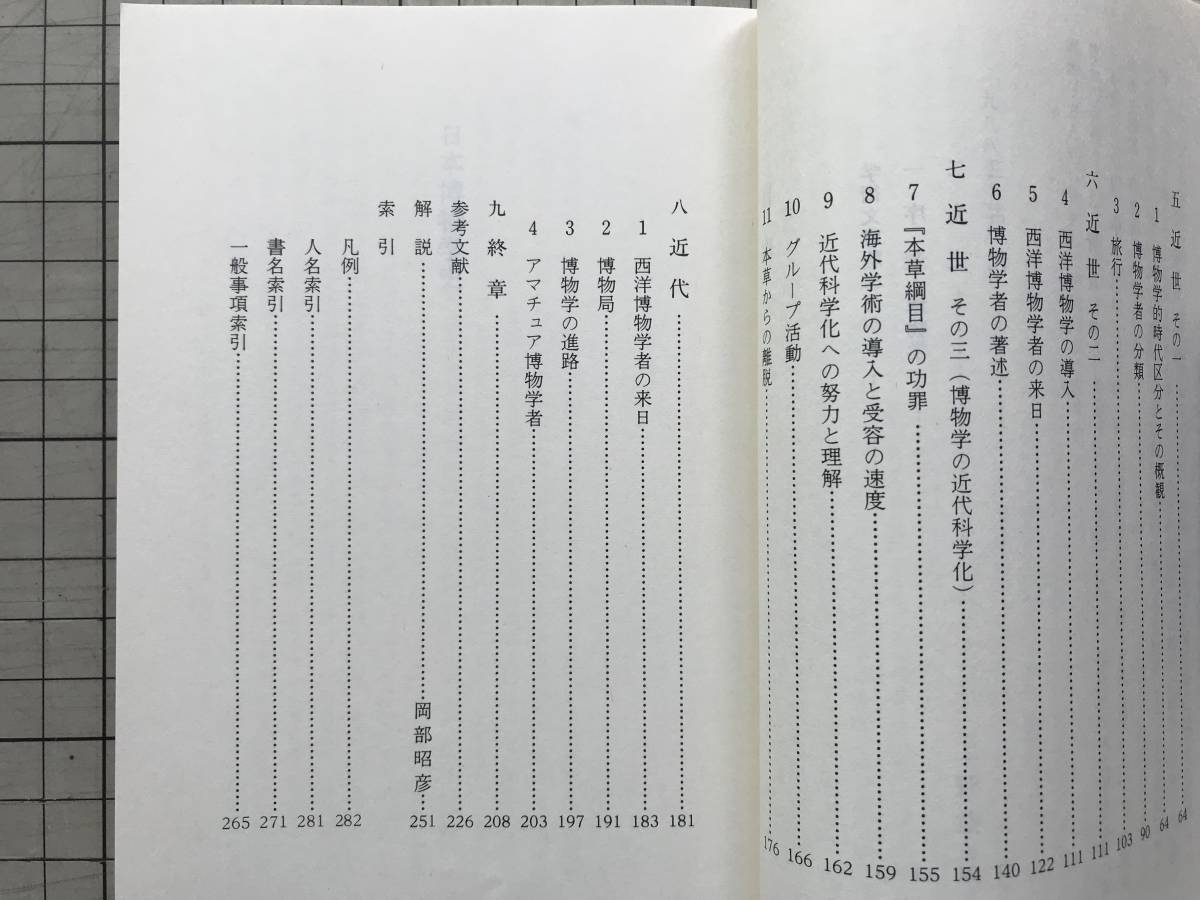 五 近世 その一……64
1 博物学的時代区分とその概観……64
2 博物学者の分類……90
3 旅行……103
六 近世 その二……111
4 西洋博物学の導入……111
5 西洋博物学者の来日……122
6 博物学者の著述……140
七 近世 その三(博物学の近代科学化)……154
7 『本草綱目』の功罪……155
8 海外学術の導入と受容の速度……159
9 近代科学化への努力と理解……162
10 グループ活動……166
11 本草からの離脱……176
八 近代……181
1 西洋博物学者の来日……183
2 博物局……191
3 博物学の進路……197
4 アマチュア博物学者……203
九 終章……208
参考文献……226
解説……岡部昭彦…251
索引
凡例……282
人名索引……281
書名索引……271
一般事項索引……265